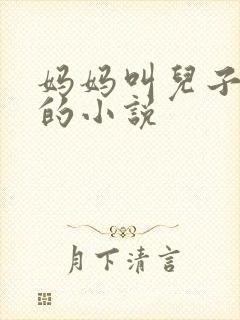 妈妈叫兒子
的小説
月下清言